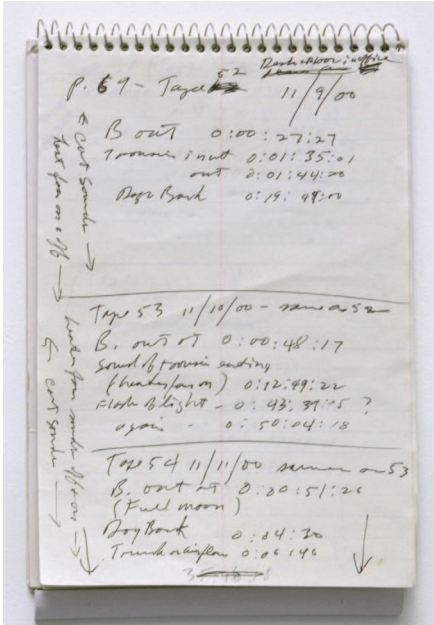 P. 69 - Tape 52
11/9/00
B out 0:00:27:27
in at 0:01:35:01
out 0:01:44:20
Dogs Bark 0:19:49:00
cart sounds
heat fan on + off
Tape 53 11/10/00 - same as 52
B. out at 0:00:48:17
Sound of mousie eating
(heater fan on) 0:12:49:22
Flash of light - 0:43:39:15 ?
again - 0:50:04:18
heater fan sounds off + on
cart sounds
Tape 54 11/11/00 same as 53
B. out at 0:00:51:26
(Full moon)
Dog Bark 0:04:30
Truck or airplane 0:06:46